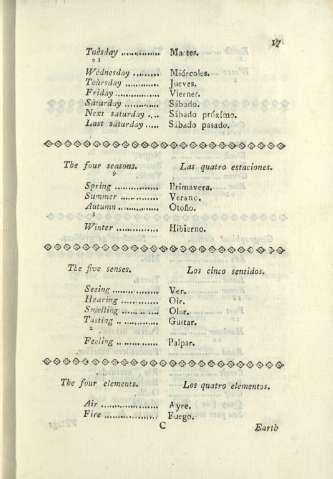 17
Tuêsday .............. Martes.
2 1
Wédnesday ......... Miércoles.
Teûrsday ............ Jueves.
Friday ................ Vierner.
Sáturday ............. Sábado.
Next sáturday .... Sábado próximo.
Last sáturday ..... Sábado pasado.
The four seasons. Las quatro estaciones.
Spring ................ Primavera.
Summer .............. Verano.
Autumn .............. Otoño.
Winter ............... Hibierno.
The five senses. Los cinco sentidos.
Seeing ................ Ver.
Hearing ............. Oir.
Smelling ............. Olor.
Tasting .............. Gustar.
2
Feeling ............... Palpar.
The four elements. Los quatro elementos.
Air .................... Ayre.
Fire ................... Fuego.
C Earth